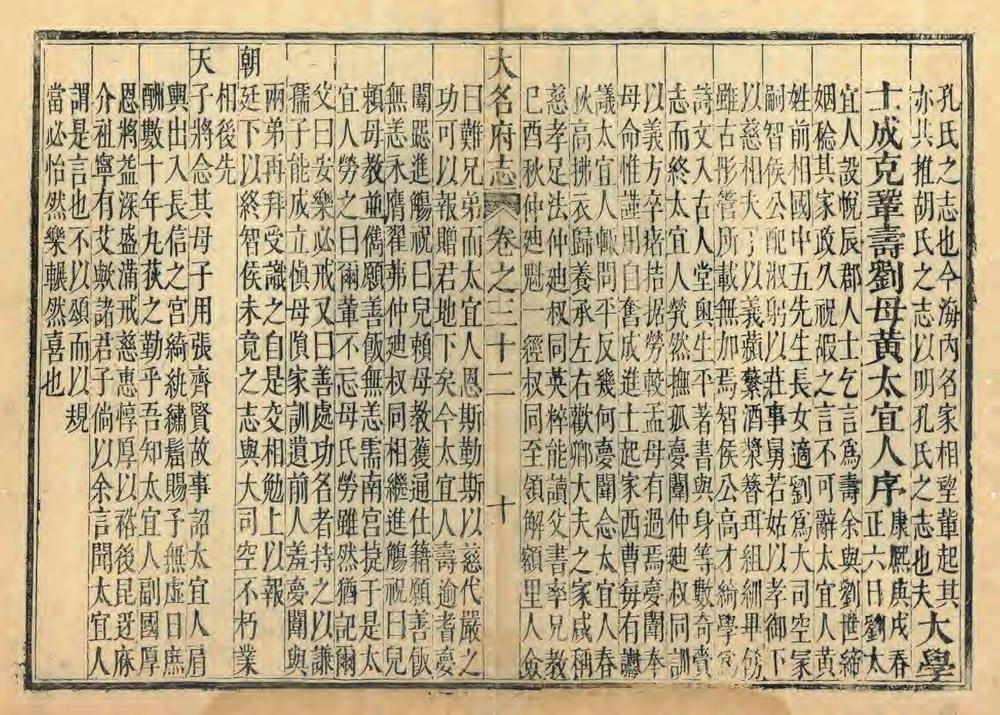 孔氏之志也今海內名家相望輩起其
亦共推胡氏之志以明孔氏之志也夫大學
士成克鞏壽劉母黃太宜人序康熙庚戌春正六日劉太
宜人設帨辰郡人士乞言爲壽余與劉世締
姻稔其家政久祝嘏之言不可辭太宜人黃
姓前相國中五先生長女適劉爲大司空冢
嗣智侯公配淑躬以莊事舅若姑以孝御下
以慈相夫子以義蘋蘩酒漿簪珥組紃畢飭
雖古彤管所載無加焉智侯公高才綺學爲
詩文入古人堂奧生平著書與身等數奇賫
志而終太宜人煢然撫孤夢闈仲廸叔同訓
以義方卒瘏拮据勞較孟母有過焉夢闈奉
母命惟謹用自奮成進士起家西曹每有讞
議太宜人輒問平反幾何夢闈念太宜人春
秋高拂衣歸養承左右歡鄉大夫之家咸稱
慈孝足法仲廸叔同英粹能讀父書率兄教
已酉秋仲廸魁一經叔同至領解額里人僉
大名府志 卷之三十二 十
曰難兄弟而太宜人恩斯勤斯以慈代嚴之
功可以報贈君地下矣今太宜人壽逾耆夢
闈跽進觴祝曰兒賴母教獲通仕籍願善飯
無恙永膺翟茀仲廸叔同相繼進觴祝曰兒
賴母教竝儁願善飯無恙需南宮㨗于是太
宜人勞之曰爾輩不忘母氏勞雖然猶記爾
父曰安樂必戒又曰善處功名者持之以謙
孺子能成立愼毋隕家訓遺前人羞夢闈與
兩弟再拜受識之自是交相勉上以報
朝廷下以終智侯未竟之志與大司空不朽業
相後先
天子將念其母子用張齊賢故事詔太宜人肩
輿出入長信之宮綺紈繡鬋賜予無虛日庶
酬數十年九荻之勤乎吾知太宜人副國厚
恩將益深盛滿戒慈惠惇厚以裕後昆迓麻
介祖寧有艾歟諸君子倘以余言聞太宜人
謂是言也不以頌而以規
當必怡然樂囅然喜也